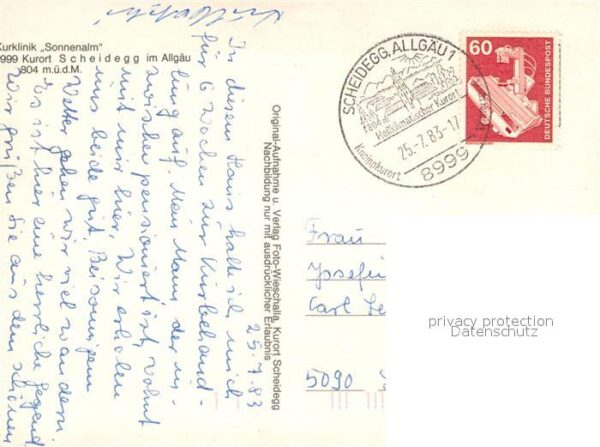 Kurklinik „Sonnenalm"
8999 Kurort Scheidegg im Allgäu
804 m.ü.d.M.
25.7.83
In diesem Haus halte ich mich
für 6 Wochen zur Kurbehand-
lung auf. Mein Mann der in-
zwischen pensioniert ist, wohnt
mit mir hier. Wir erholen
uns beide gut. Bei sonnigem
Wetter gehen wir viel wandern
Es ist hier eine herrliche Gegend
Wir grüßen Sie aus dem schönen
Original-Aufnahme u. Verlag Foto-Wieschalla, Kurort Scheidegg
Nachbildung nur mit ausdrücklicher Erlaubnis
SCHEIDEGG, ALLGÄU 1
Heilklimatischer Kurort
25.-7.83-17
Kneippkurort
8999
60
DEUTSCHE BUNDESPOST
Frau
Josefin
Carl
5090
privacy protection
Datenschutz